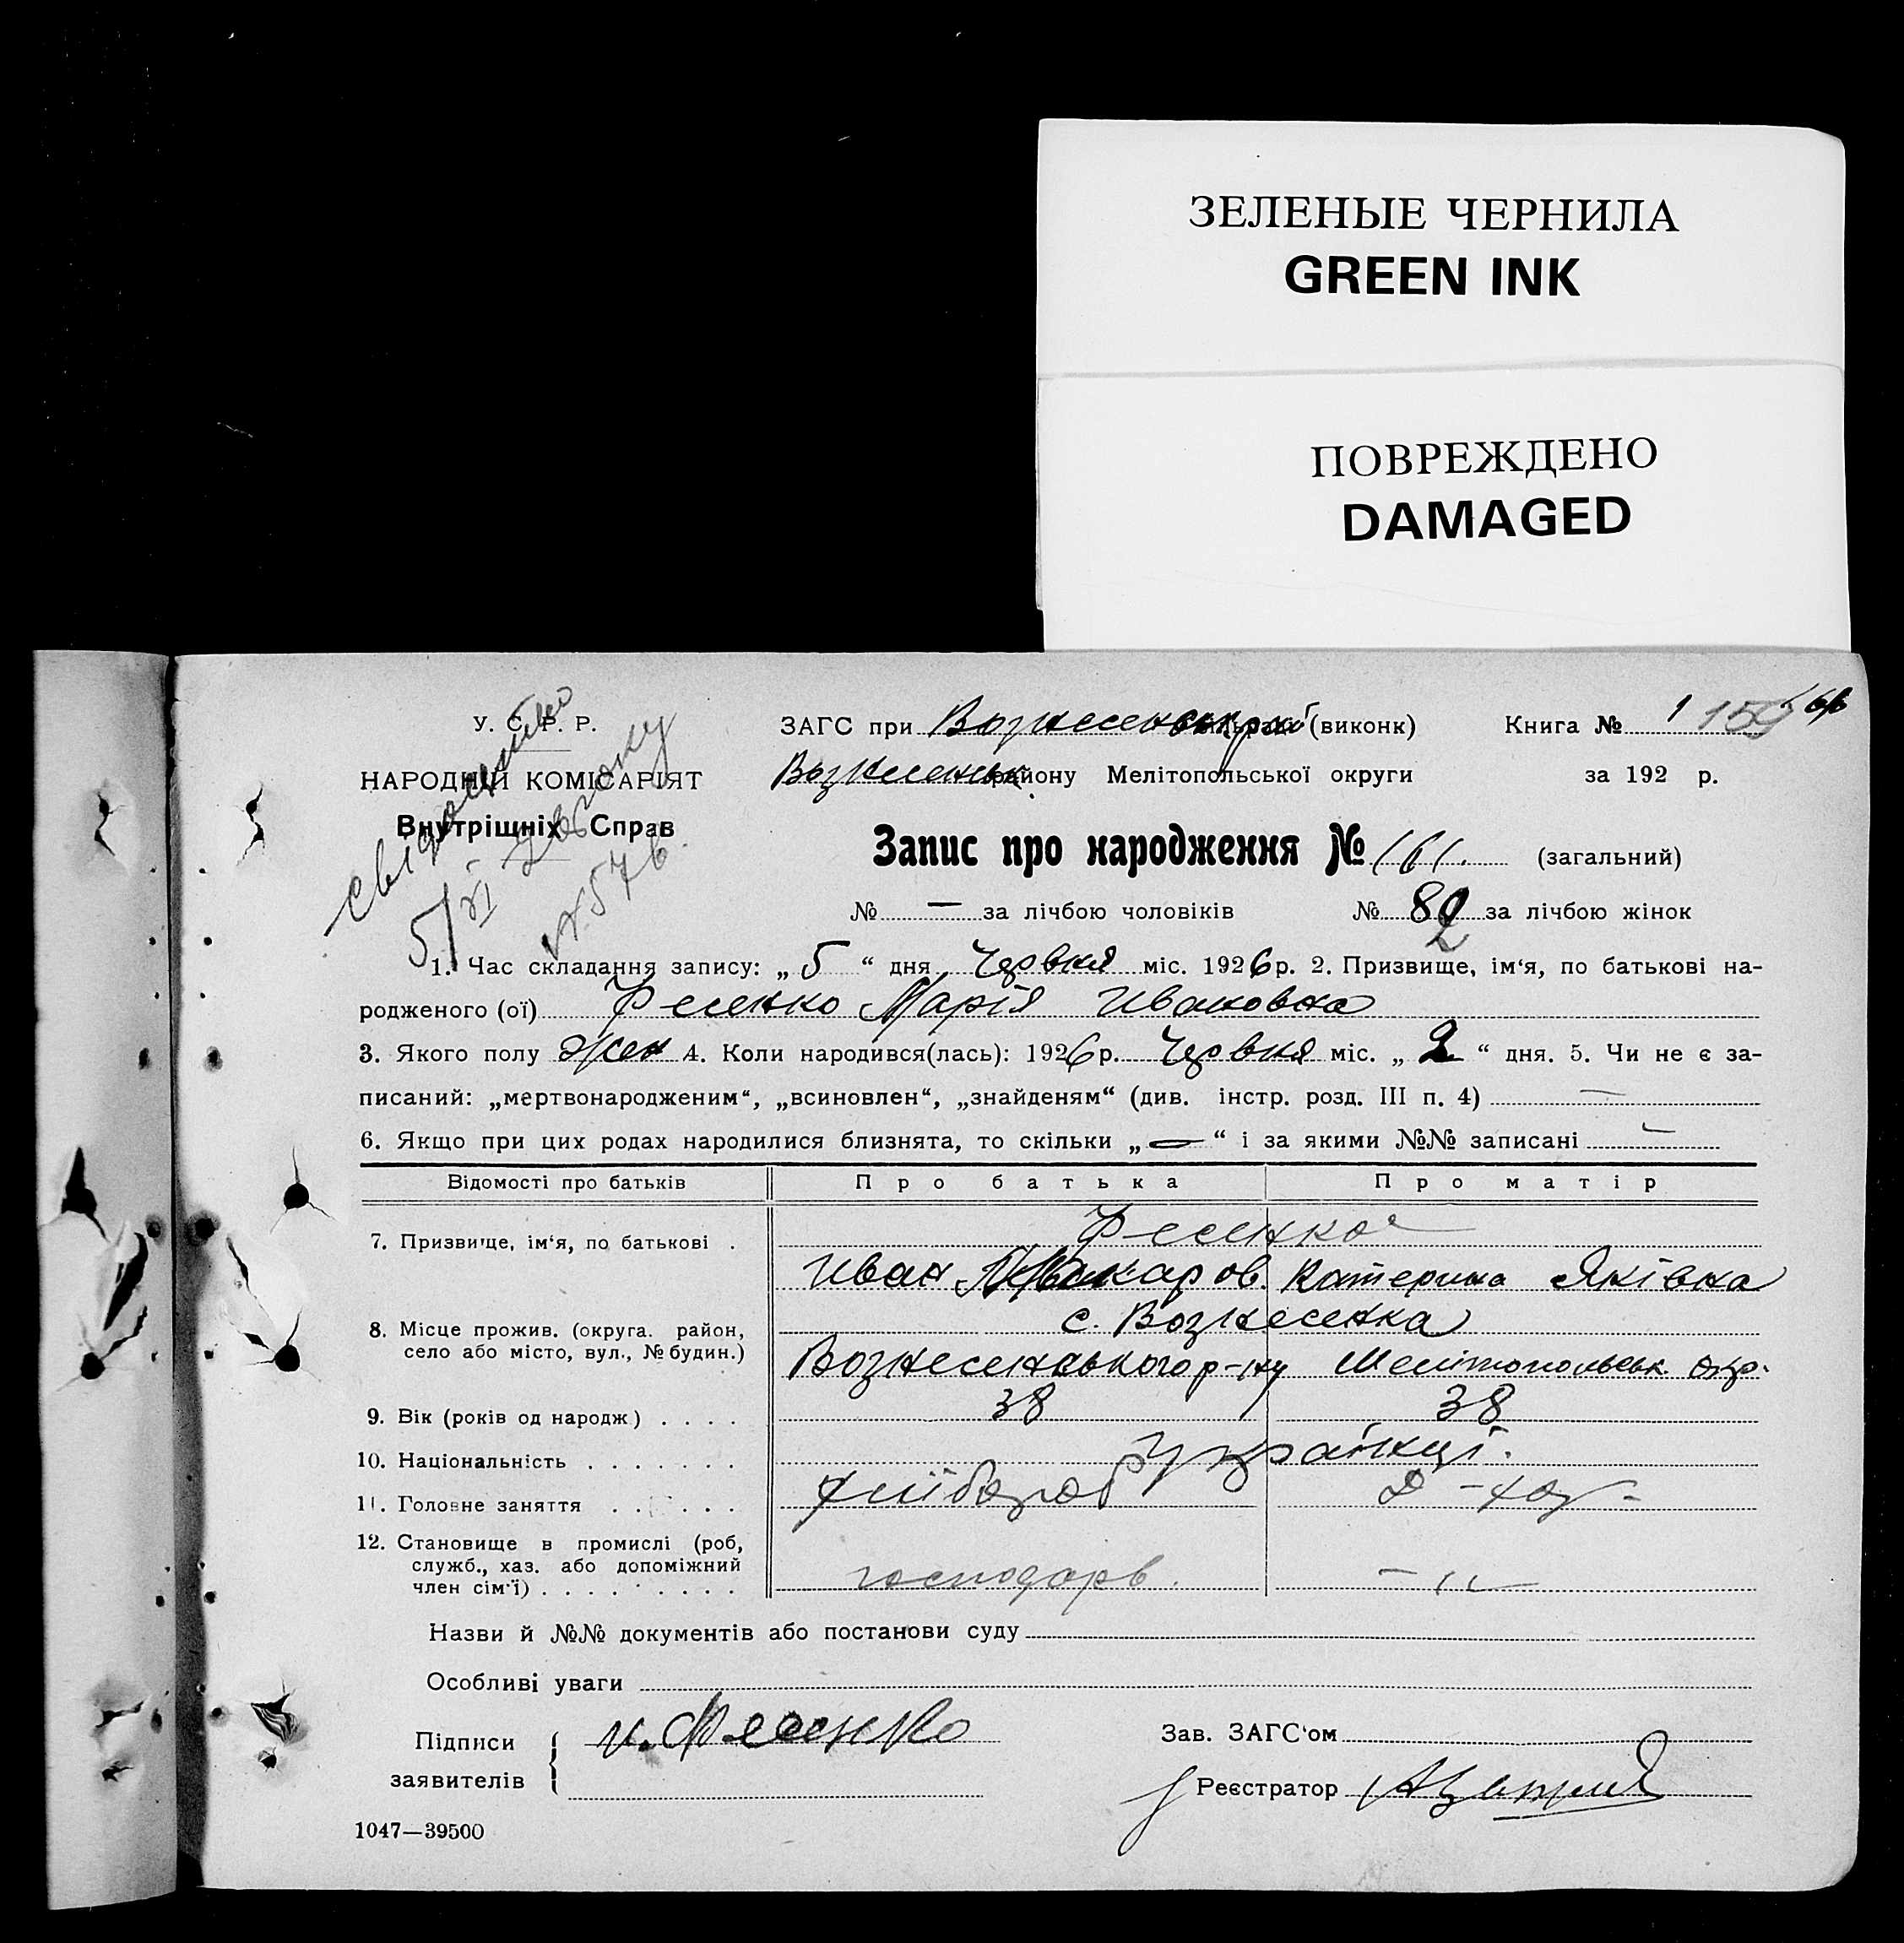 ЗЕЛЕНЫЕ ЧЕРНИЛА
GREEN INK
ПОВРЕЖДЕНО
DAMAGED
У. С. Р. Р.
НАРОДНІЙ КОМІСАРІЯТ
Внутрішніх Справ
5/VI
ЗАГС при Вознесенськ (виконк)
Книга № 1
Вознесенськ. району Мелітопольської округи
за 192 р.
Запис про народження № 161. (загальний)
№ — за лічбою чоловіків № 82 за лічбою жінок
1. Час складання запису: „ 5 “ дня Червня міс. 1926 р. 2. Призвище, ім‘я, по батькові на-
родженого (ої) Фесенко Марія Ивановна
3. Якого полу Жен 4. Коли народився(лась): 1926 р. Червня міс. „ 2 “ дня. 5. Чи не є за-
писаний: „мертвонародженим“, „всиновлен“, „знайденям“ (див. інстр. розд. III п. 4) —
6. Якщо при цих родах народилися близнята, то скільки „ — “ і за якими №№ записані —
Відомості про батьків
Про батька
Про матір
7. Призвище, ім‘я, по батькові .
Фесенко
Иван Макаров. Катерина Яківна
8. Місце прожив. (округа. район,
село або місто, вул., № будин.)
с. Вознесенка
Вознесенського р-ну Мелітопольськ. окр.
9. Вік (років од народж) . . . .
38
38
10. Національність . . . . . . .
Українці.
11. Головне заняття . . . . . .
хлібороб
Д-хоз-
12. Становище в промислі (роб,
служб., хаз. або допоміжний
член сім‘ї) . . . . . . . . .
господарь.
— „ —
Назви й №№ документів або постанови суду
Особливі уваги
Підписи
заявителів
И. Фесенко
Зав. ЗАГС‘ом
Реєстратор
1047—39500